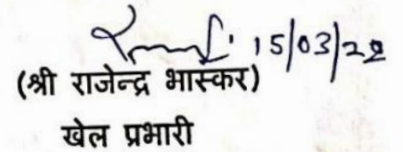 15/03/22
(श्री राजेन्द्र भास्कर)
खेल प्रभारी